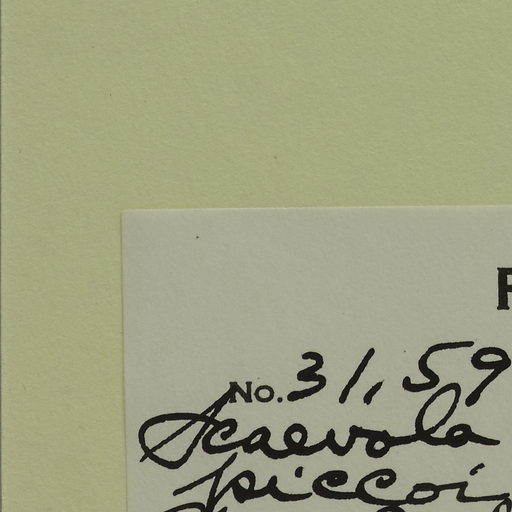 F
No. 31,59
Scaevola
piccoi